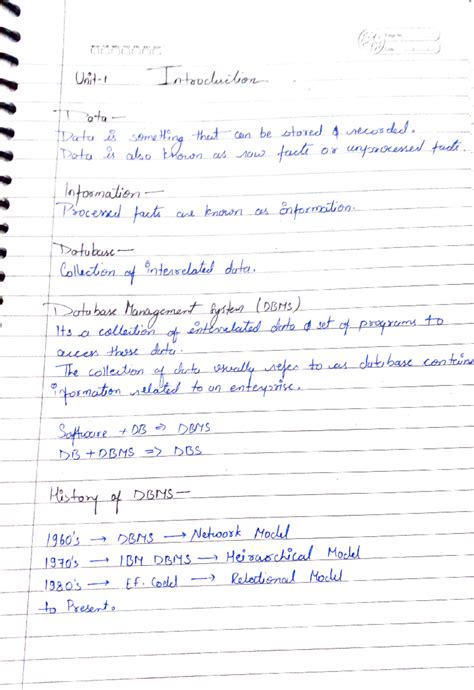 Unit-1 Introduction
Data —
Data is something that can be stored & recorded.
Data is also known as raw facts or unprocessed facts.
Information —
Processed facts are known as information.
Database —
Collection of interrelated data.
Database Management System (DBMS)
Its a collection of interrelated data & set of programs to
access these data.
The collection of data usually refer to as database contains
information related to an enterprise.
Software + DB ⇒ DBMS
DB + DBMS => DBS
History of DBMS —
1960's → DBMS → Network Model
1970's → IBM DBMS → Heirarchical Model
1980's → EF. Codd → Relational Model
to Present.